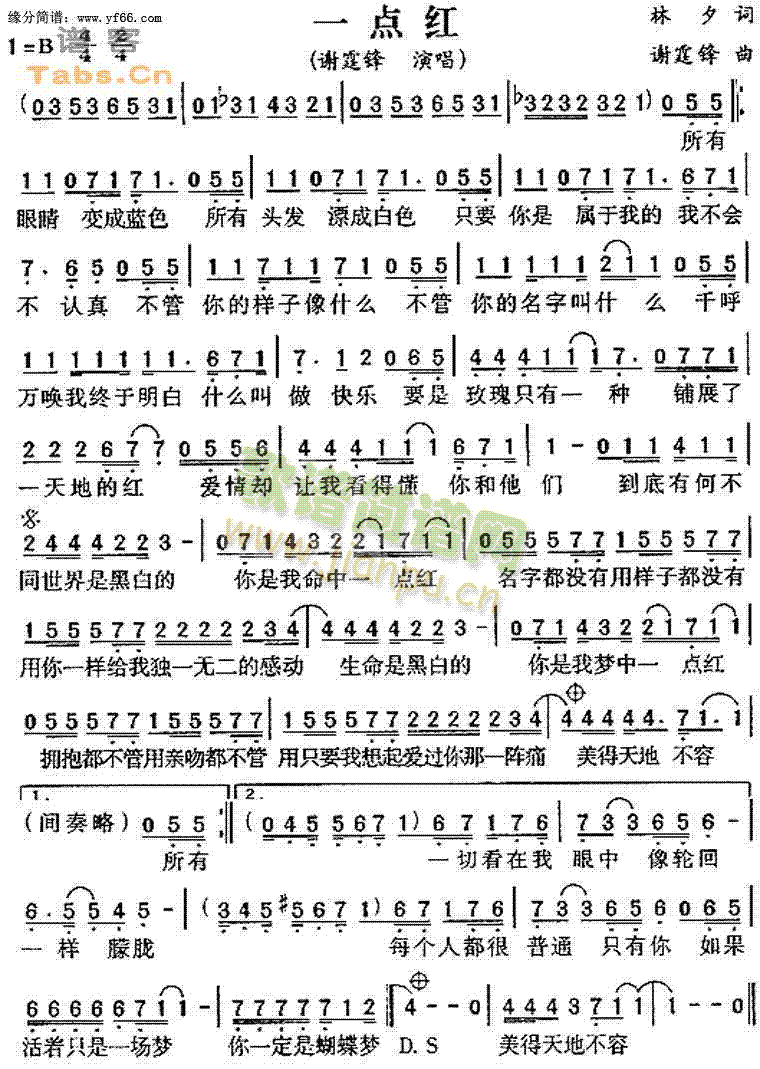 缘分简谱：www.yf66.com
一 点 红
林 夕 词
1=B 4/4 2/4
谱客
Tabs.Cn
(谢霆锋 演唱)
谢霆锋 曲
(03536531 01♭314321 03536531 ♭3232321) 055
所有
1107171. 055 1107171. 055 1107171. 671
眼睛 变成蓝色 所有 头发 漂成白色 只要 你是 属于我的 我不会
7. 65055 1171171055 11111211055
不 认真 不管 你的样子像什么 不管 你的名字叫什 么 千呼
1111111. 671 7. 12065 4441117. 0771
万唤我终于明白 什么叫 做 快乐 要是 玫瑰只有一 种 铺展了
2226770556 4441111671 1-011411
一天地的红 爱情却 让我看得懂 你和他 们 到底有何不
24442 23- 07143221711 0555771555577
同世界是黑白的 你是我命中一 点红 名字都没有用样子都没有
155577222222234 44442 23- 07143221711
用你一样给我独一无二的感动 生命是黑白的 你是我梦中一 点红
0555771555577 15557722222234 44444. 71. 1
拥抱都不管用亲吻都不管 用只要我想起爱过你那一阵痛 美得天地 不容
1. 2.
(间奏略) 055 (0455671) 67176 733656-
所有 一切看在我 眼中 像轮回
6. 5545- (345♯5671) 67176 733656065
一样 朦胧 每个人都很 普通 只有你 如果
66666711- 77777712 4--0 44437111--0
活着只是一场梦 你一定是蝴蝶梦 D.S 美得天地不容
歌谱简谱网
www.jianpu.cn